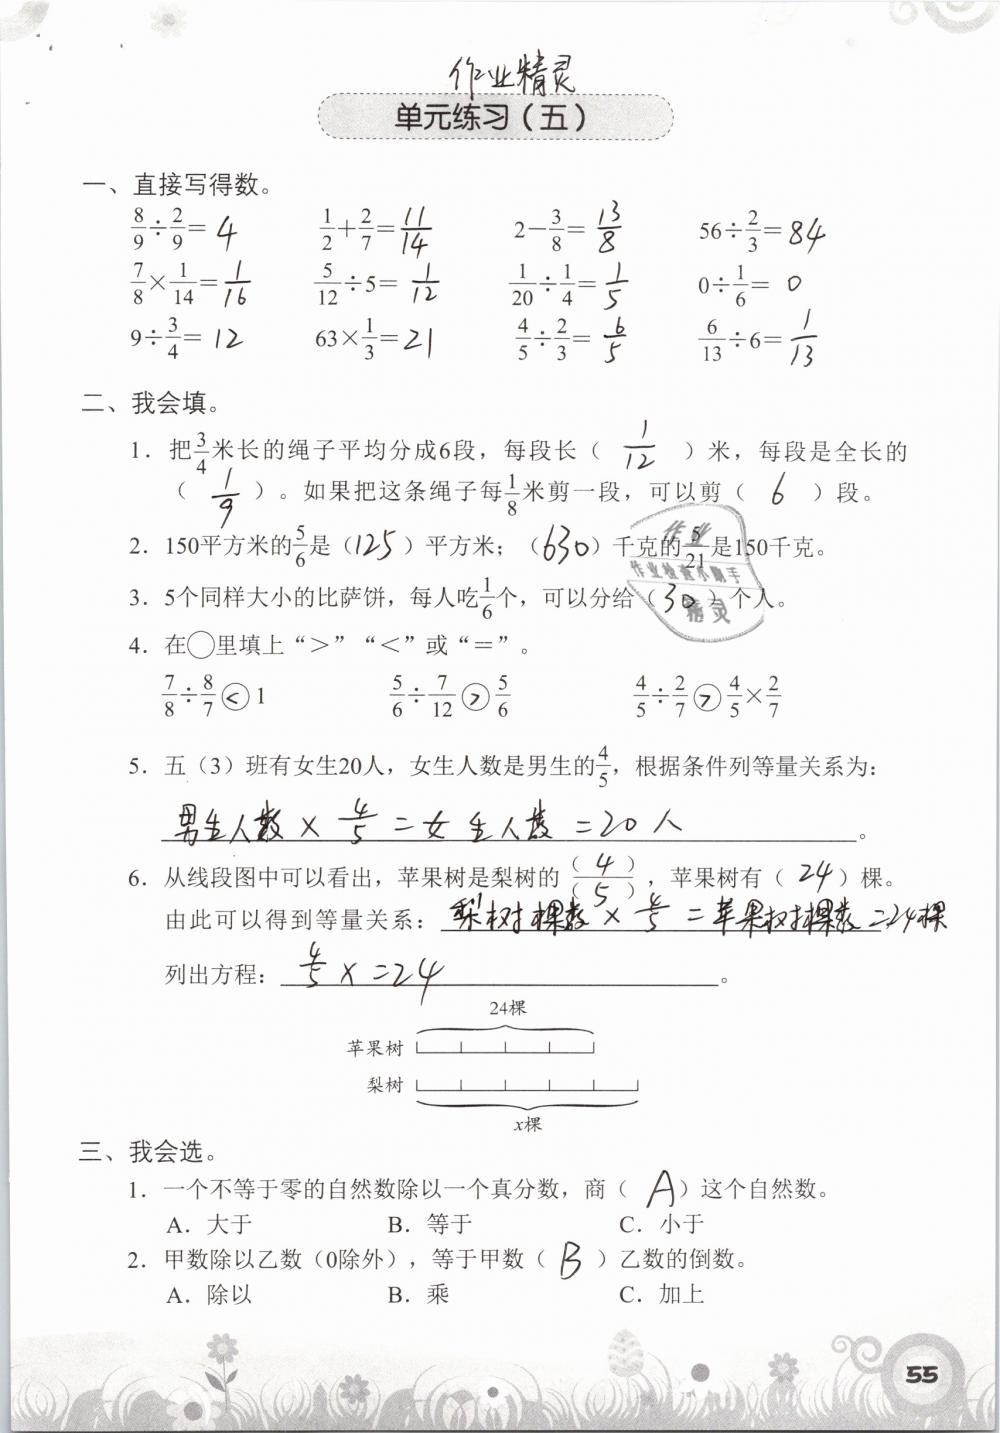 作业精灵
单元练习（五）
一、直接写得数。
8/9÷2/9=4 1/2+2/7=11/14 2-3/8=13/8 56÷2/3=84
7/8×1/14=1/16 5/12÷5=1/12 1/20÷1/4=1/5 0÷1/6=0
9÷3/4=12 63×1/3=21 4/5÷2/3=6/5 6/13÷6=1/13
二、我会填。
1. 把3/4米长的绳子平均分成6段，每段长（1/12）米，每段是全长的
（1/9）。如果把这条绳子每1/8米剪一段，可以剪（6）段。
2. 150平方米的5/6是（125）平方米；（630）千克的5/21是150千克。
作业
作业检查小助手
精灵
3. 5个同样大小的比萨饼，每人吃1/6个，可以分给（30）个人。
4. 在○里填上“＞”“＜”或“＝”。
7/8÷8/7＜1 5/6÷7/12＞5/6 4/5÷2/7＞4/5×2/7
5. 五（3）班有女生20人，女生人数是男生的4/5，根据条件列等量关系为：
男生人数×4/5=女生人数=20人。
6. 从线段图中可以看出，苹果树是梨树的（4）/（5），苹果树有（24）棵。
由此可以得到等量关系：梨树棵数×4/5=苹果树棵数=24棵
列出方程：4/5x=24。
24棵
苹果树
梨树
x棵
三、我会选。
1. 一个不等于零的自然数除以一个真分数，商（A）这个自然数。
A. 大于 B. 等于 C. 小于
2. 甲数除以乙数（0除外），等于甲数（B）乙数的倒数。
A. 除以 B. 乘 C. 加上
55